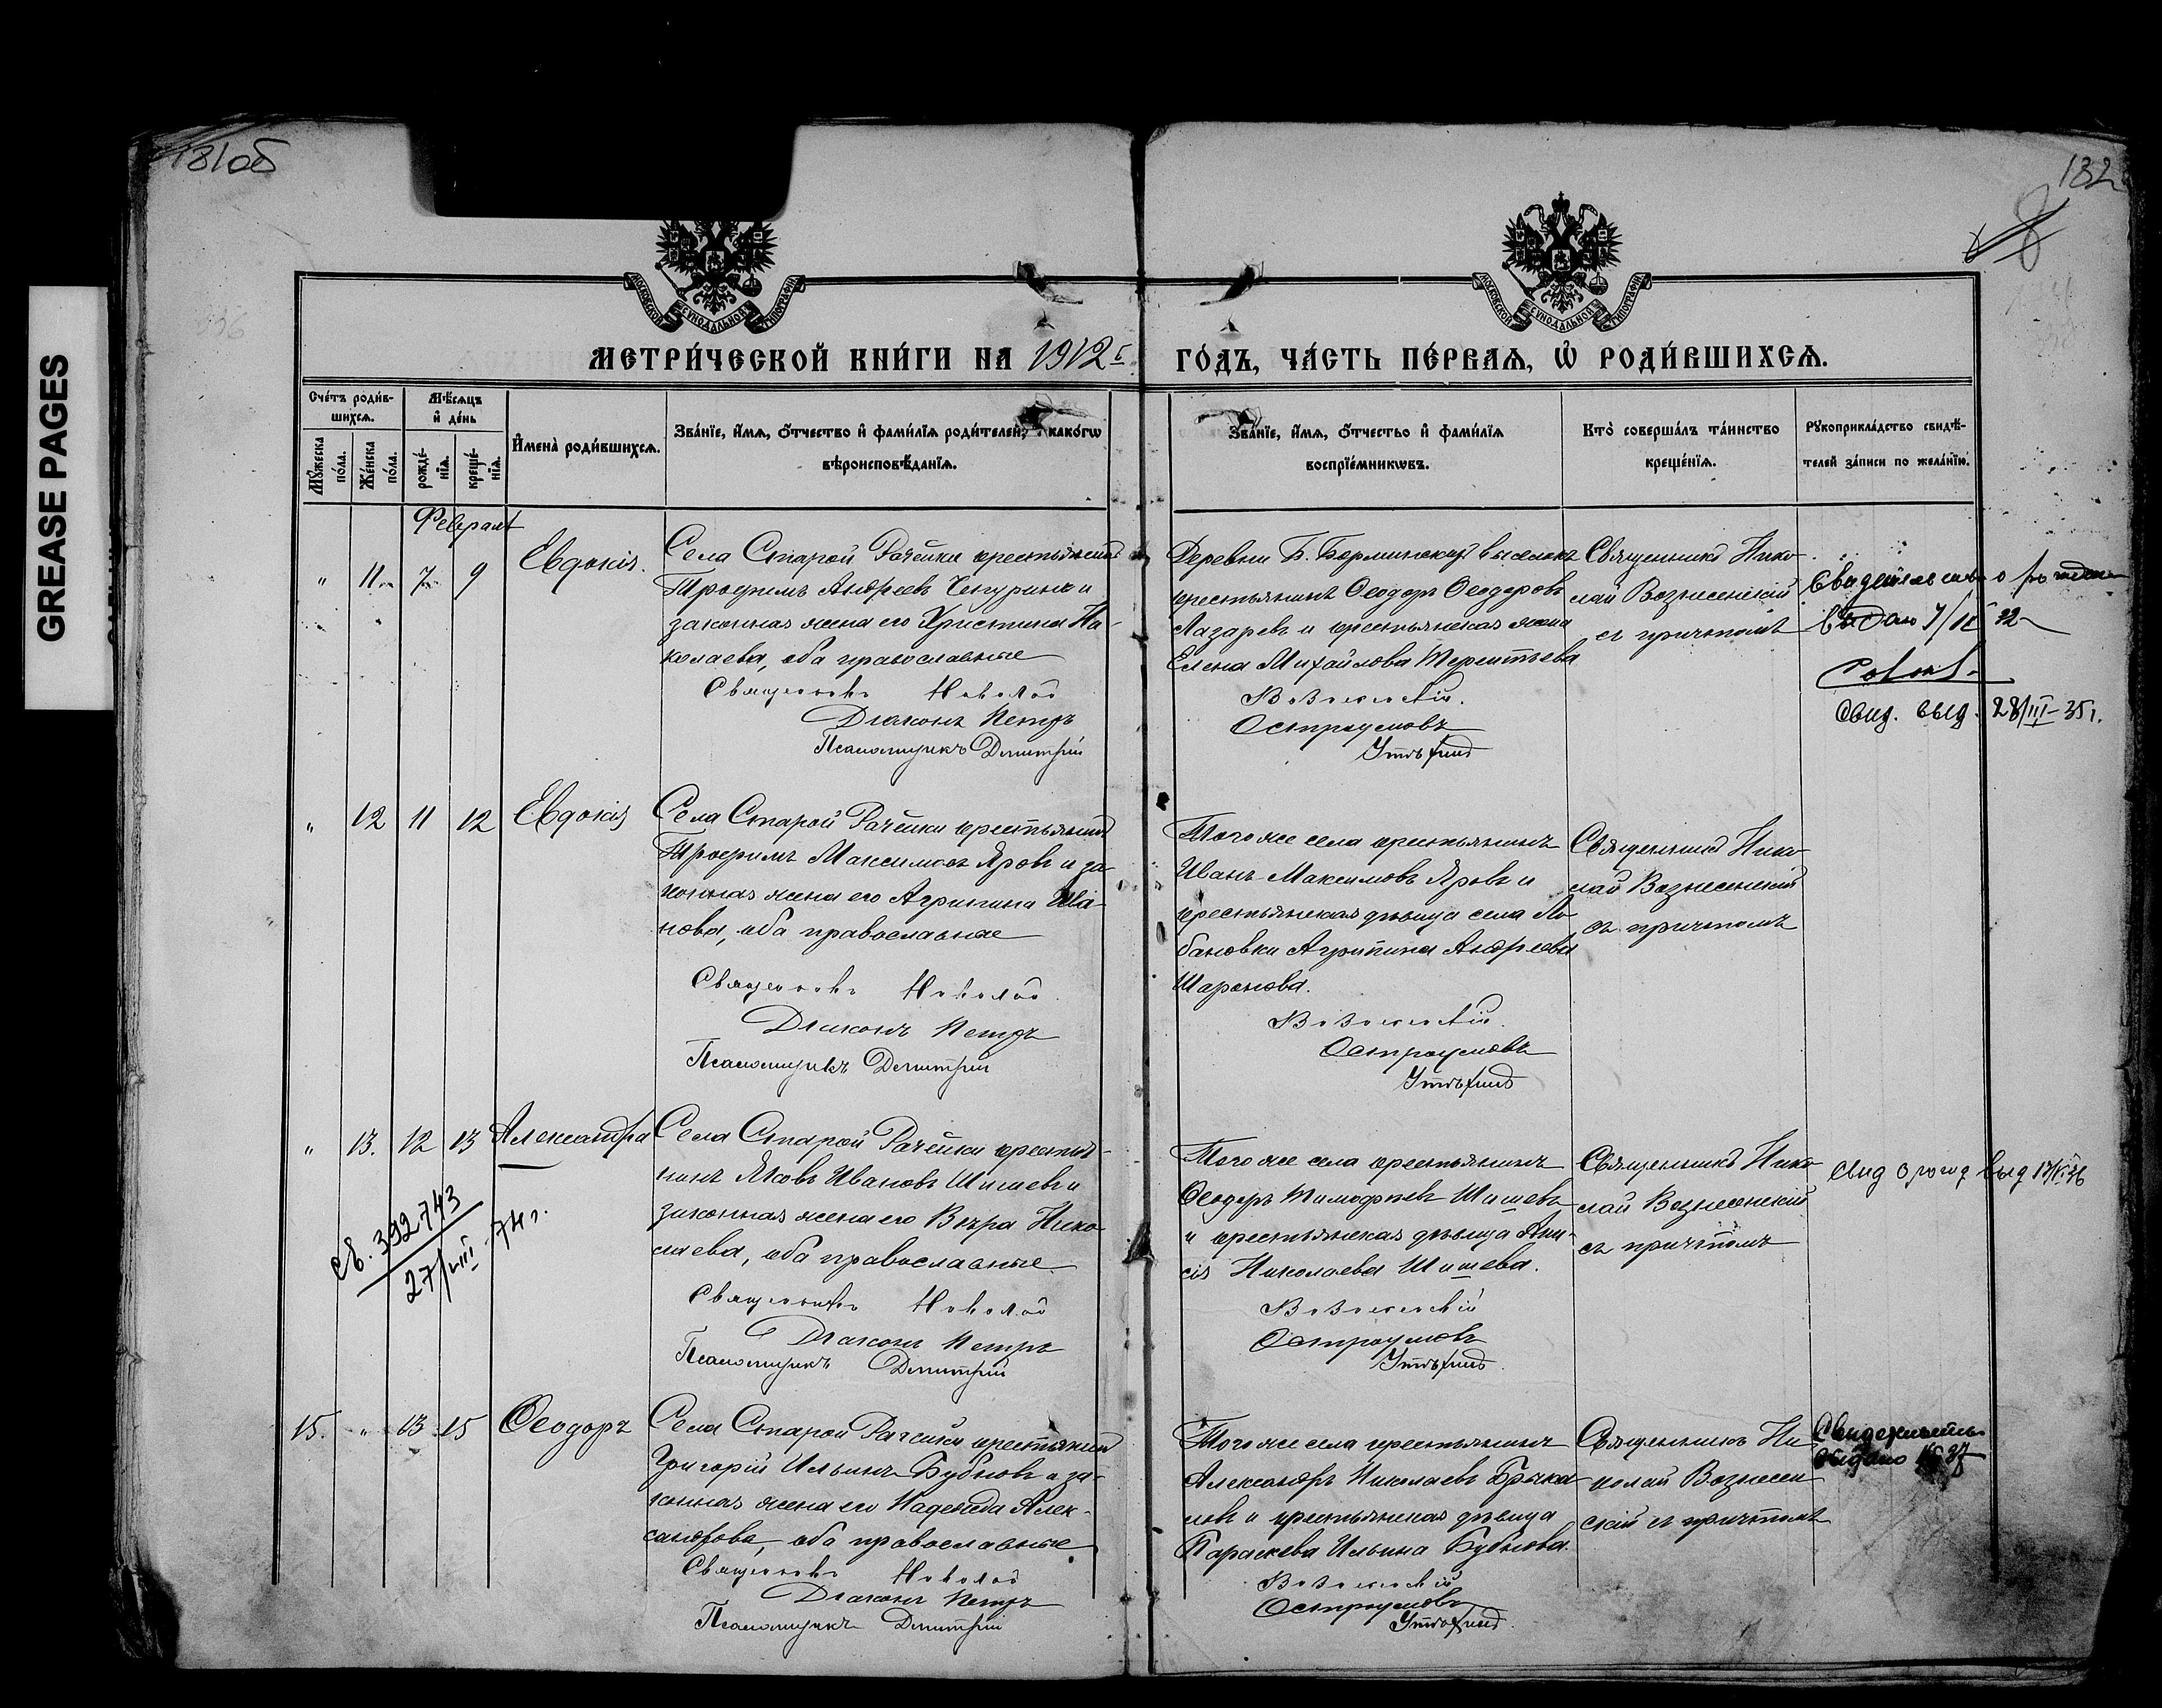 181об
132
8
GREASE PAGES
МОСКОВСКОЙ СѴНОДАЛЬНОЙ ТИПОГРАФІИ
МОСКОВСКОЙ СѴНОДАЛЬНОЙ ТИПОГРАФІИ
МЕТРИ́ЧЕСКОЙ КНИ́ГИ НА 1912 г.
ГО́ДЪ, ЧА́СТЬ ПЕ́РВАѦ, Ѡ҆ РОДИ́ВШИХСѦ.
Сче́тъ роди́в-
шихсѧ.
Мꙋ́жеска по́ла.
Же́нска по́ла.
Мѣ́сѧцъ
и҆ де́нь
рожде́-
нїѧ.
креще́-
нїѧ.
И҆мена̀ роди́вшихсѧ.
Зва́нїе, и҆́мѧ, ѻ҆́тчество и҆ фами́лїѧ роди́телей, и҆ како́гѡ
вѣроисповѣ́данїѧ.
Зва́нїе, и҆́мѧ, ѻ҆́тчество и҆ фами́лїѧ
воспрїе́мникѡвъ.
Кто̀ соверша́лъ та́инство
креще́нїѧ.
Рꙋкоприкла́дство свидѣ́-
телей за́писи по жела́нїю.
Февраль
" 11 7 9 Евдокія.
Села Старой Рачейки крестьянинъ
Трофимъ Андреевъ Чепуринъ и
законная жена его Христина Ни-
колаева, оба православные
Священникъ Николай
Діаконъ Петръ
Псаломщикъ Димитрій
Деревни Б. выселокъ
крестьянинъ Ѳеодоръ Ѳеодоровъ
Лазаревъ и крестьянская жена
Елена Михайлова Терентьева
Вознесенскій.
Остроумовъ
Утѣхинъ
Священникъ Нико-
лай Вознесенскій
съ причтомъ
Свидетельство о рожден
выдано
Свид. выд. 28/III-35 г.
" 12 11 12 Евдокія
Села Старой Рачейки крестьянинъ
Трофимъ Максимовъ Яровъ и за-
конная жена его Агрипина Ива-
нова, оба православные
Священникъ Николай
Діаконъ Петръ
Псаломщикъ Димитрій
Того же села крестьянинъ
Иванъ Максимовъ Яровъ и
крестьянская дѣвица села Ло-
бановки Агрипина Андреева
Шаронова.
Вознесенскій.
Остроумовъ
Утѣхинъ
Священникъ Нико-
лай Вознесенскій
съ причтомъ
" 13. 12 13 Александра
св. 392743
27/VIII-74 г.
Села Старой Рачейки крестья-
нинъ Яковъ Ивановъ Шишевъ и
законная жена его Вѣра Нико-
лаева, оба православные
Священникъ Николай
Діаконъ Петръ
Псаломщикъ Димитрій
Того же села крестьянинъ
Ѳеодоръ Тимофѣевъ Шишевъ
и крестьянская дѣвица Ани-
сія Николаева Шишева.
Вознесенскій
Остроумовъ
Утѣхинъ.
Священникъ Нико-
лай Вознесенскій
съ причтомъ
свид о рожд выд
15. " 13 15 Ѳеодоръ
Села Старой Рачейки крестьянинъ
Григорій Ильинъ Бубновъ и за-
конная жена его Надежда Алек-
сандрова, оба православные.
Священникъ Николай
Діаконъ Петръ
Псаломщикъ Димитрій
Того же села крестьянинъ
Александръ Николаевъ
и крестьянская дѣвица
Параскева Ильина Бубнова.
Вознесенскій
Остроумовъ
Утѣхинъ.
Священникъ Ни-
колай Вознесен-
скій съ причтомъ
Свидетельст
выдано